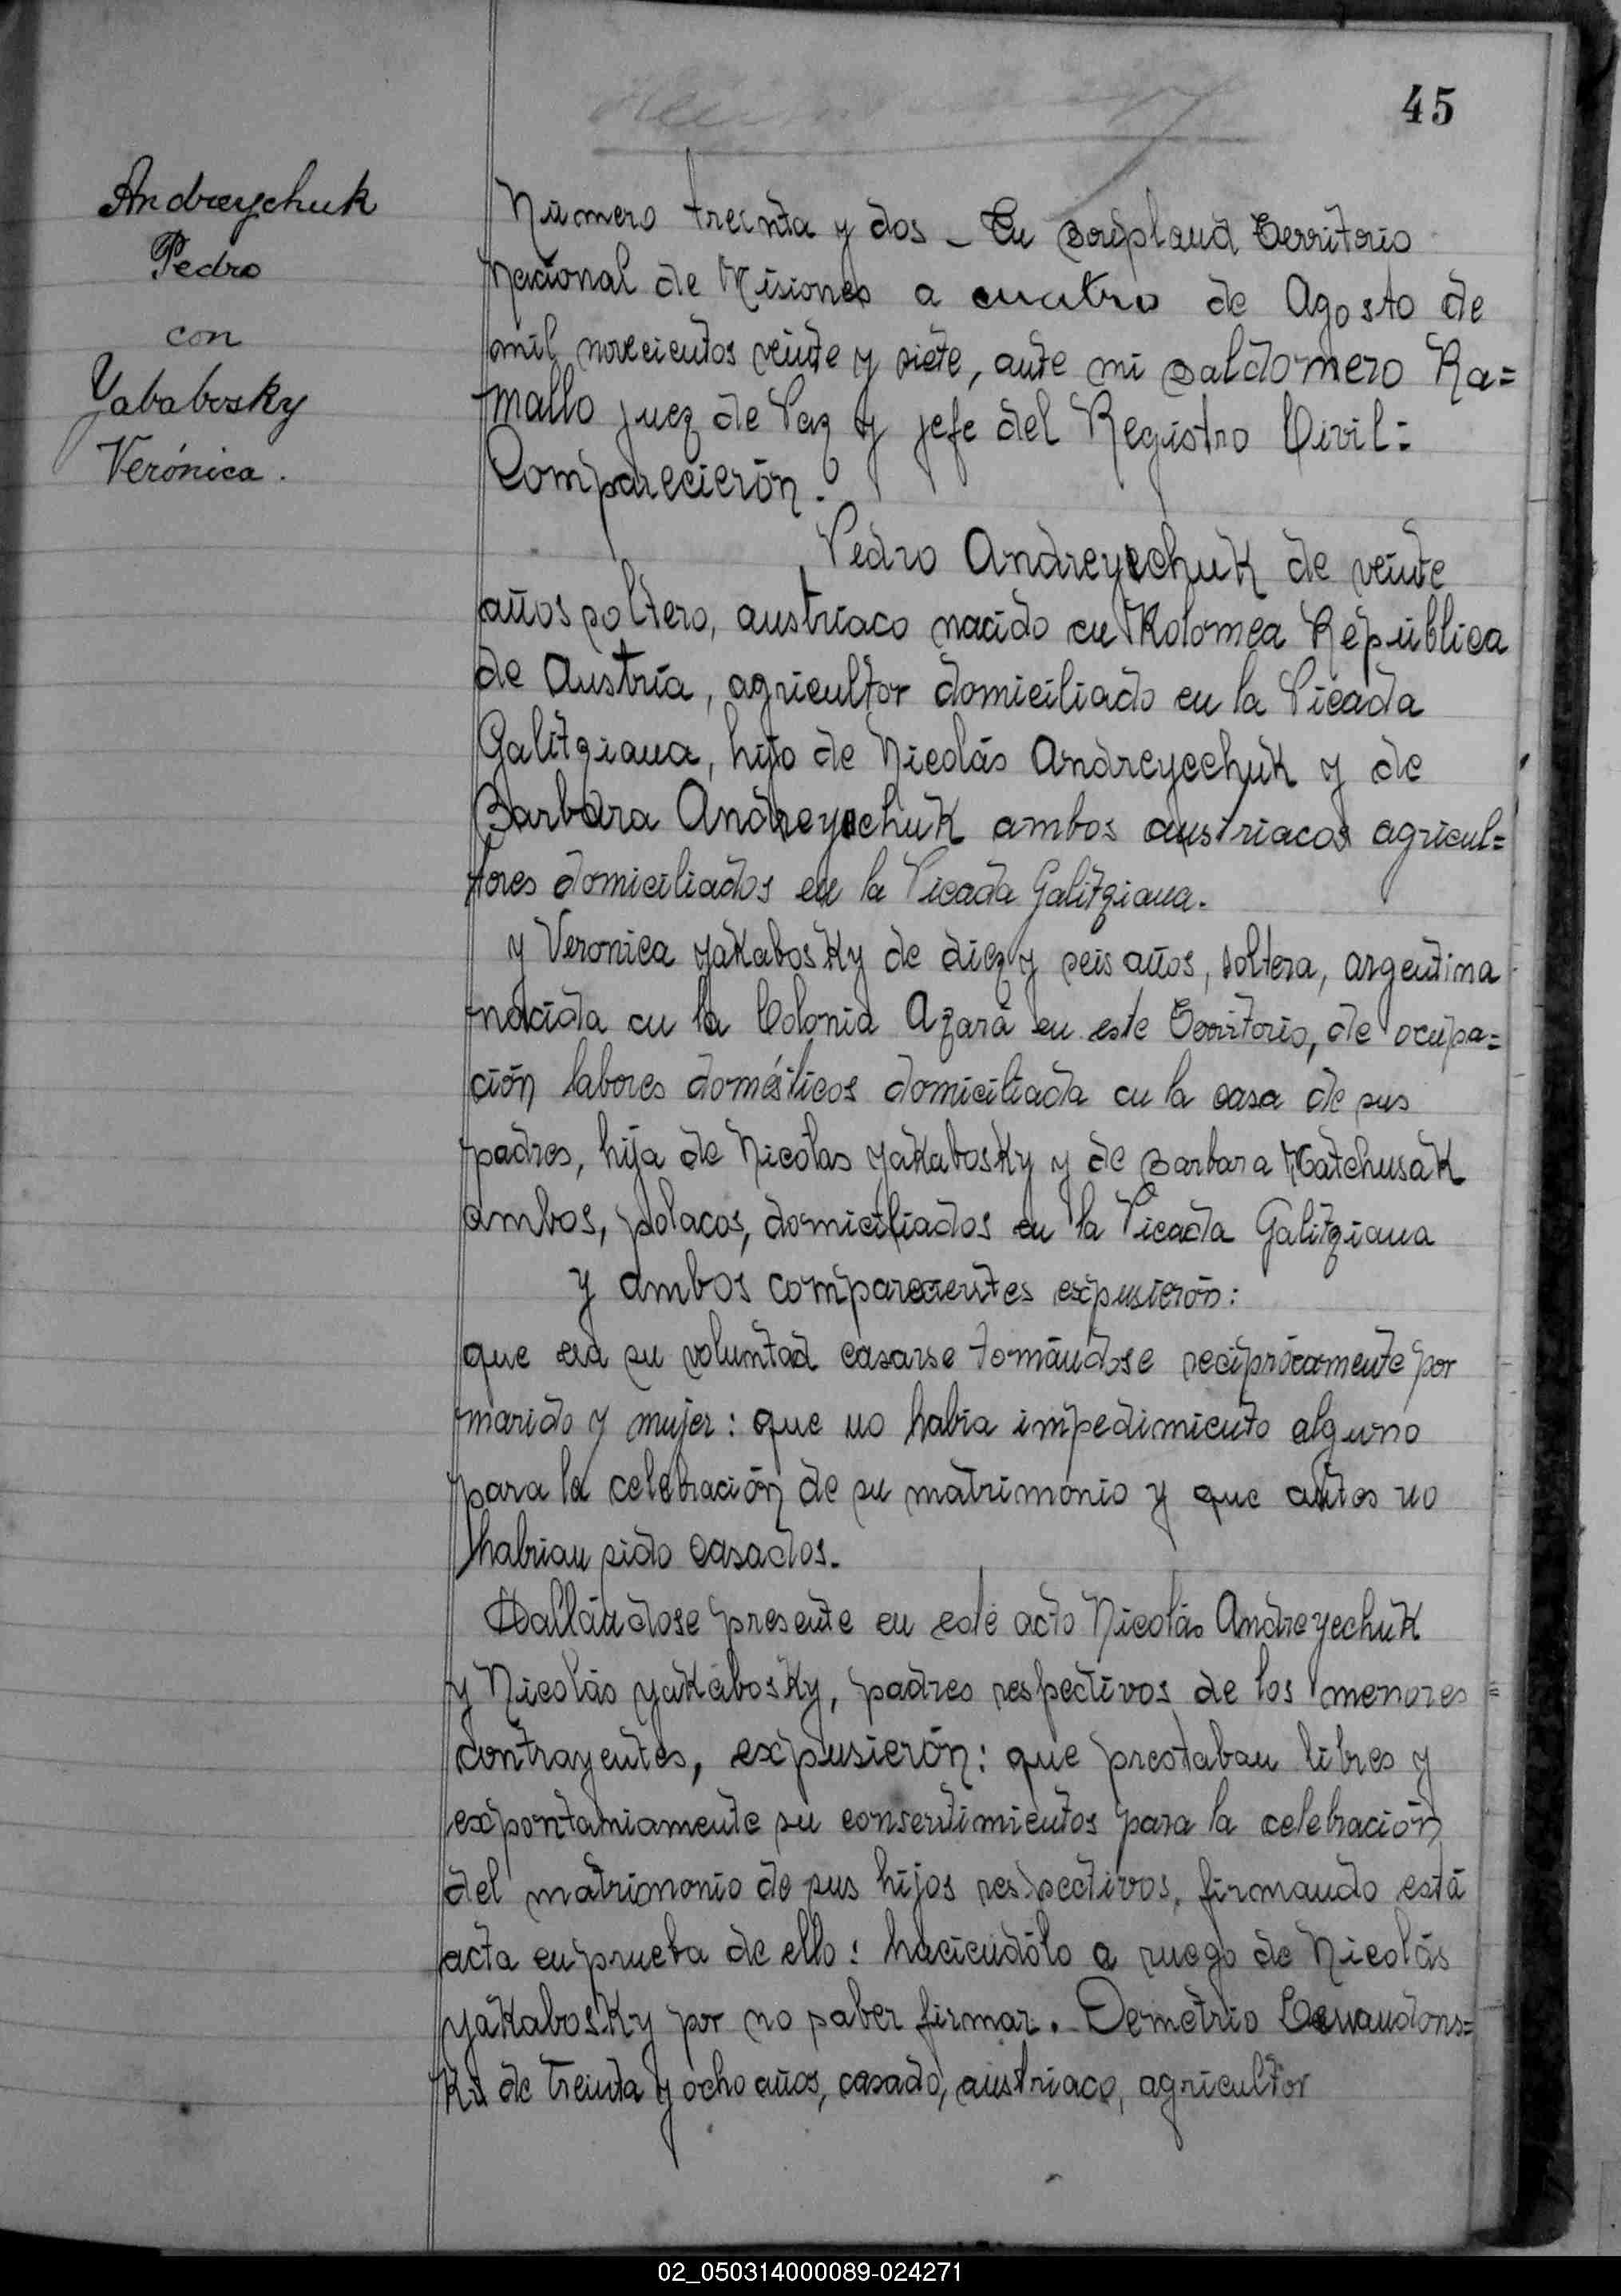 45
Andreychuk
Pedro
con
Yababosky
Verónica.
Número treinta y dos _ En Boripland Territorio
Nacional de Misiones a cuatro de Agosto de
mil novecientos veinte y siete, ante mi Baldomero Ra=
mallo juez de Paz y jefe del Registro Civil:
Comparecierón.
Pedro Andreyechuk de veinte
años soltero, austríaco nacido en Kolomea República
de Austría, agricultor domiciliado en la Picada
Galitziana, hijo de Nicolás Andreyechuk y de
Barbara Andreyechuk ambos austriacos agricul=
tores domiciliados en la Picada Galitziana.
y Veronica yakabosky de diez y seis años, soltera, argentina
nacida en la Colonia Azará en este Territorio, de ocupa=
ción labores domésticos domiciliada en la casa de sus
padres, hija de Nicolás yakabosky y de Barbara Matchusak
ambos, polacos, domiciliados en la Picada Galitziana
y ambos comparecientes expusierón:
que era su voluntad casarse tomándose reciprócamente por
marido y mujer: que no habia impedimiento alguno
para la celebración de su matrimonio y que antes no
habrian sido casados.
Hallándose presente en este acto Nicolás Andreyechuk
y Nicolás yakabosky, padres respectivos de los menores
contrayentes, expusierón: que prestaban libres y
expontaniamente su consentimientos para la celebración
del matrimonio de sus hijos respectivos, firmando está
acta en prueba de ello: haciendólo a ruego de Nicolás
yakabosky por no saber firmar. Demetrio
de treinta y ocho años, casado, austriaco, agricultor
02_050314000089-024271